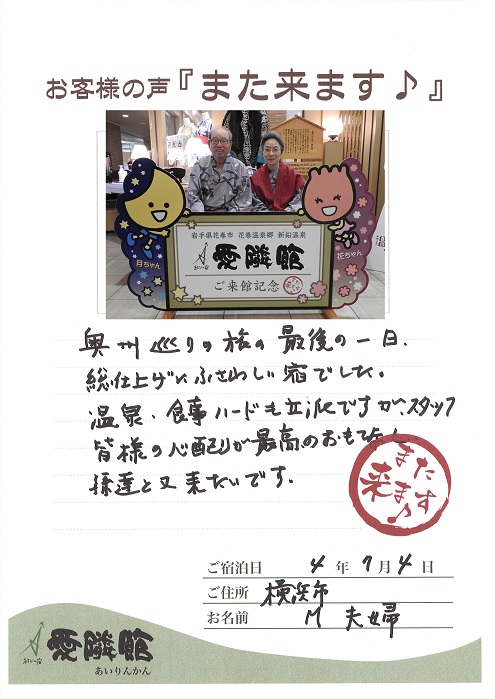 お客様の声『また来ます♪』
岩手県花巻市 花巻温泉郷 新鉛温泉
愛隣館
ご来館記念
月ちゃん
花ちゃん
奥州巡りの旅の最後の一日、
総仕上げにふさわしい宿でした。
温泉、食事ハードも立派ですが、スタッフ
皆様の心配りが最高のおもてなし
孫達と又来たいです。
また
来ます♪
ご宿泊日 4年7月4日
ご住所 横浜市
お名前 M 夫婦
愛隣館
あいりんかん